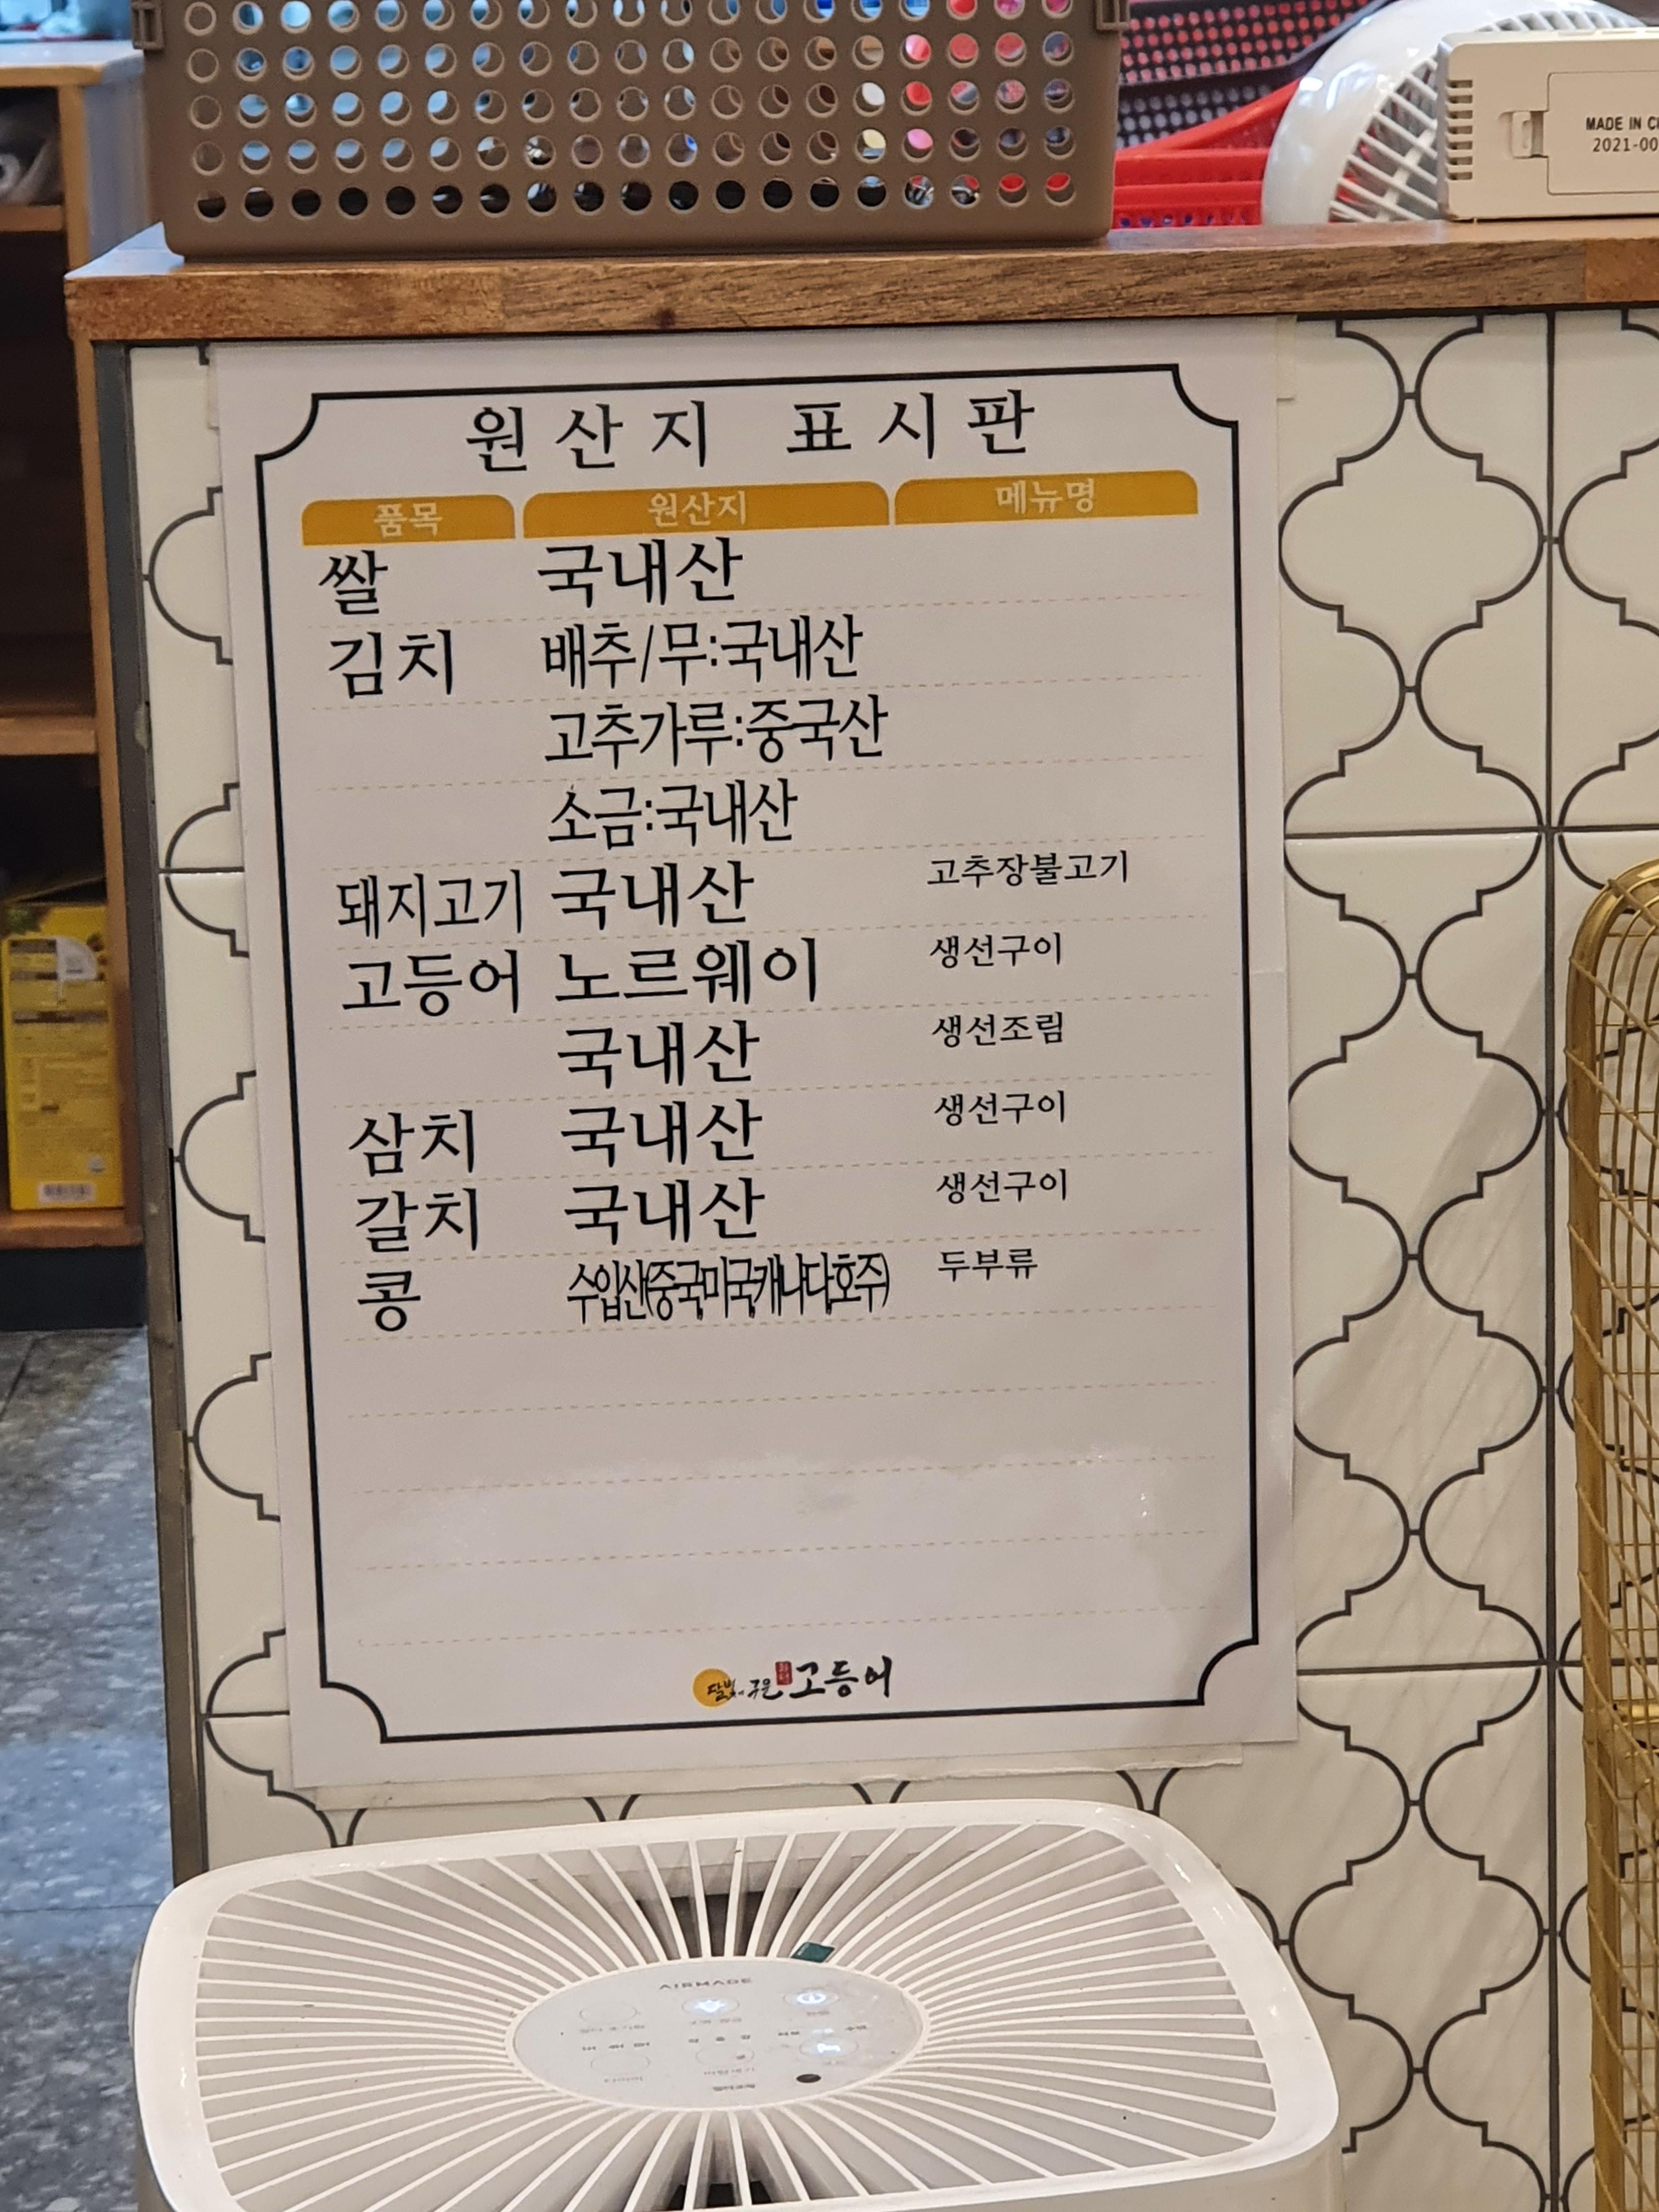 MADE IN C
2021-00
원산지 표시판
품목 원산지 메뉴명
쌀 국내산
김치 배추/무:국내산
고추가루:중국산
소금:국내산
돼지고기 국내산 고추장불고기
고등어 노르웨이 생선구이
국내산 생선조림
삼치 국내산 생선구이
갈치 국내산 생선구이
콩 수입산(중국,미국,캐나다,호주) 두부류
달빛에 구운 고등어
AIRMADE